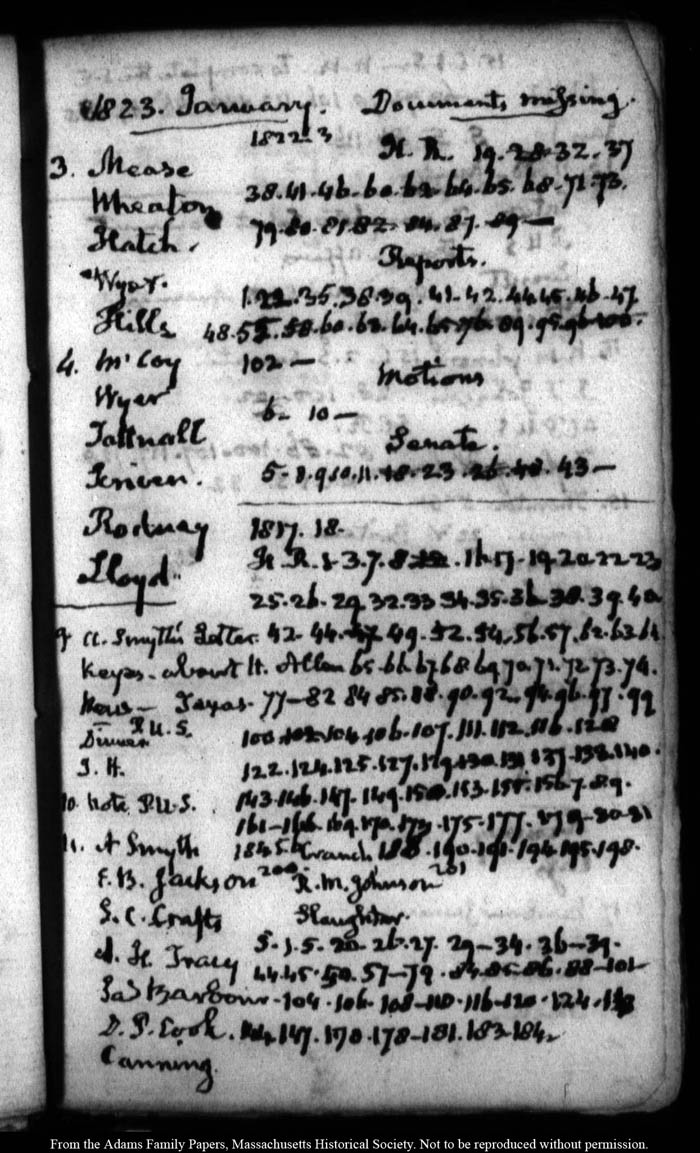 1823. January. Documents missing.
1822.3
3. Mease H. R. 19.28.32.37
Wheaton 38.41.46.60.62.64.65.68.71.73.
Hatch. 79.80.81.82.84.87.89—
Reports.
Wyer. 1.22.35.38.39.41.42.44.45.46.47
Hills 48.55.58.60.63.64.65.76.89.95.96.100.
4. McCoy 102—
Motions
Wyer 6— 10—
Tattnall Senate.
5.8.9.10.11.18.23.26.40.43—
Rodney 1817.18.
Lloyd. H. R. 1-3.7. .16.17.19.20.22-23
25.26.29.32.33.34.35.36.38.39.40
9 A. Smyth's Letter. 42.44.47.49.52.54.56.57.62.63.64
Keyes—about H. Allen 65.66.67.68.69.70.71.72.73.74.
Texas. 77—82 84.85.88.90.92.94.96.97.99
Dinner P.U.S. 100.102.104.106.107.111.112.116.120
I. H. 122.124.125.127.129.130.131.137.138.140.
10. Note P.U.S. 143.146.147.149.150.153.155.156.7.89.
161-166.169.170.173.175.177.179-80-81
11. A Smyth 184.5.6 Cranch 188.190.191.194.195.198.
E. B. Jackson 200 R. M. Johnson 201
S. C. Crafts Slaughter.
A. H. Tracy 5.1.5.20.26.27.29—34.36—39.
44.45.50.57—79.84.85.86.88—101
Jas Barbour—104.106.108—110.116—120.124.
D. P. Cook. 144.147.170.178—181.183.184.
Canning.